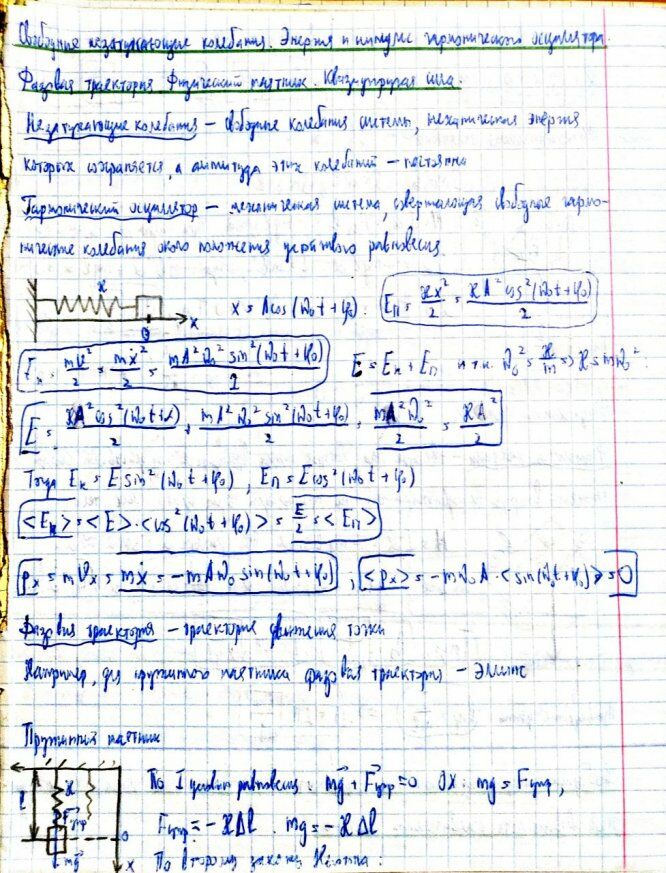 Свободные незатухающие колебания. Энергия и импульс гармонического осциллятора.
Фазовая траектория. Физический маятник. Квазиупругая сила.
Незатухающие колебания – свободные колебания системы, механическая энергия
которых сохраняется, а амплитуда этих колебаний – постоянна
Гармонический осциллятор – механическая система, совершающая свободные гармо-
нические колебания около положения устойчивого равновесия.
ϰ
0 x
x = Acos(ω₀t + φ₀). Eп = ϰx²/2 = ϰA²cos²(ω₀t + φ₀)/2
Eк = mv²/2 = mẋ²/2 = mA²ω₀²sin²(ω₀t + φ₀)/2 E = Eк + Eп и т.к. ω₀² = ϰ/m => ϰ = mω₀².
E = ϰA²cos²(ω₀t + α)/2 + mA²ω₀²sin²(ω₀t + φ₀)/2 = mA²ω₀²/2 = ϰA²/2
Тогда Eк = E sin²(ω₀t + φ₀), Eп = E cos²(ω₀t + φ₀)
<Eк> = <E>·<cos²(ω₀t + φ₀)> = E/2 = <Eп>
pₓ = mVₓ = mẋ = -mAω₀ sin(ω₀t + φ₀), <pₓ> = -mω₀A·<sin(ω₀t + φ₀)> = 0
Фазовая траектория – траектория движения точки
Например, для пружинного маятника фазовая траектория – эллипс
Пружинный маятник
ϰ
l
F⃗упр
0
mg⃗
x
По I условию равновесия: mg⃗ + F⃗упр = 0 Ox: mg = Fупр,
Fупр = -ϰΔl. mg = -ϰΔl
По второму закону Ньютона: